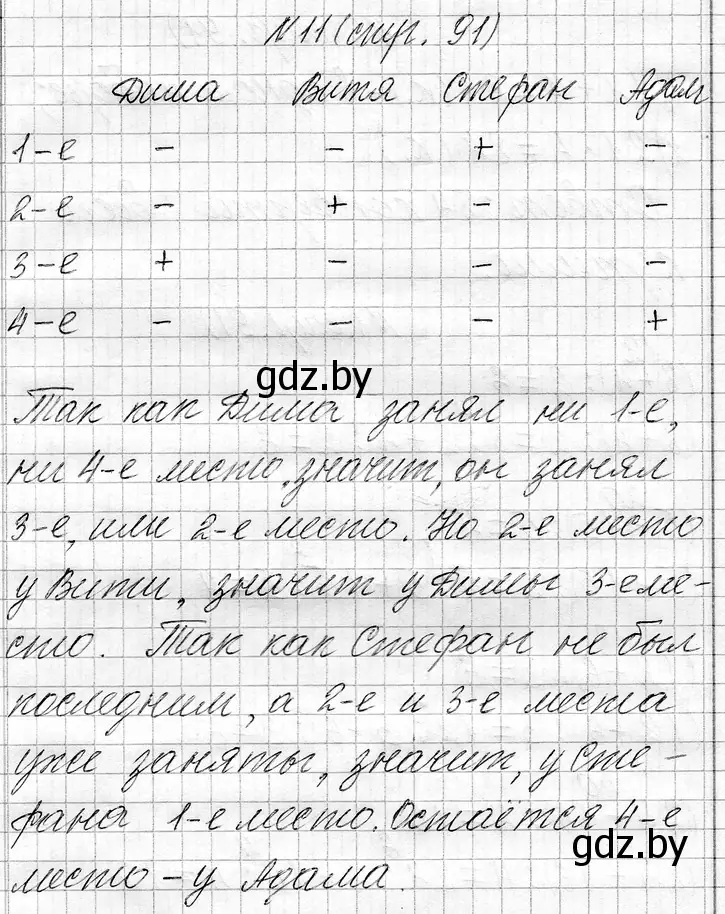 N 11 (стр. 91)
Дима Витя Стефан Адам
1-е - - + -
2-е - + - -
3-е + - - -
4-е - - - +
gdz.by
Так как Дима занял ни 1-е,
ни 4-е место, значит, он занял
3-е, или 2-е место. Но 2-е место
у Вити, значит у Димы 3-е ме-
сто. Так как Стефан не был
последним, а 2-е и 3-е места
уже заняты, значит, у Сте-
фана 1-е место. Остаётся 4-е
gdz.by
место - у Адама.